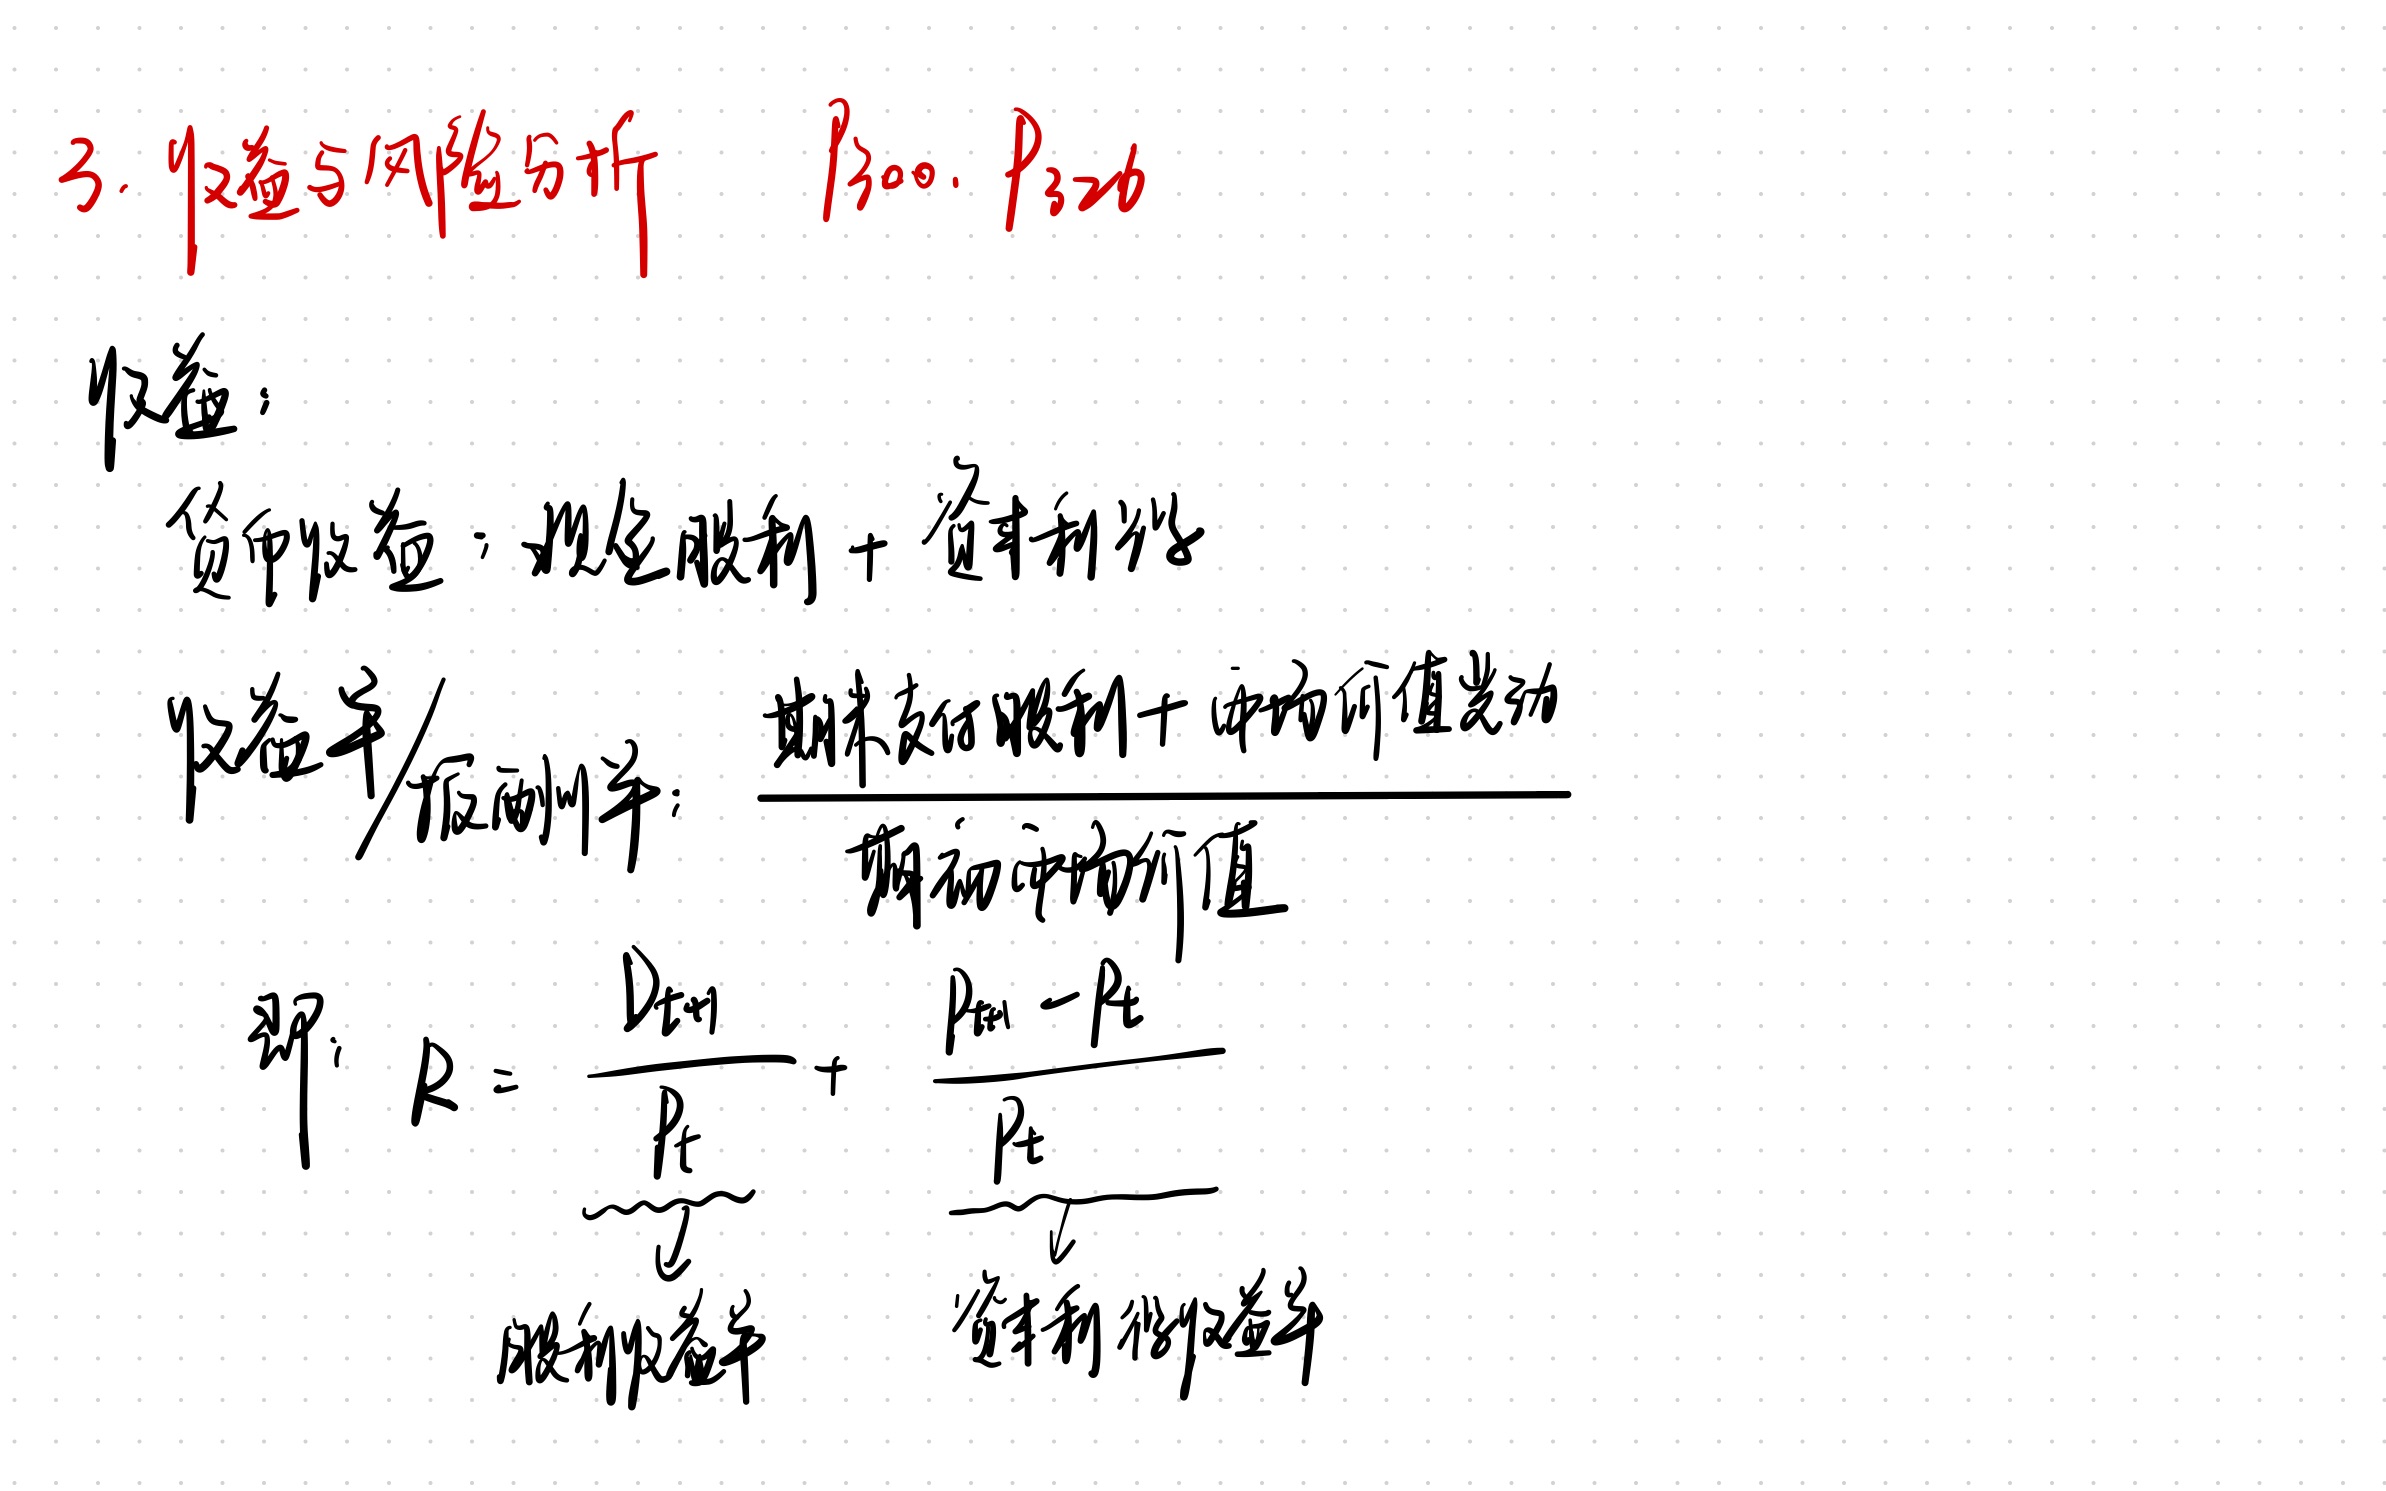 3. 收益与风险分析 P300. P326
收益:
货币收益:现金股利 + 资本利得
收益率/报酬率: 期末支付股利 + 市场价值变动
期初市场价值
即: R = D_{t+1}/P_t + (P_{t+1} - P_t)/P_t
股利收益率 资本利得收益率